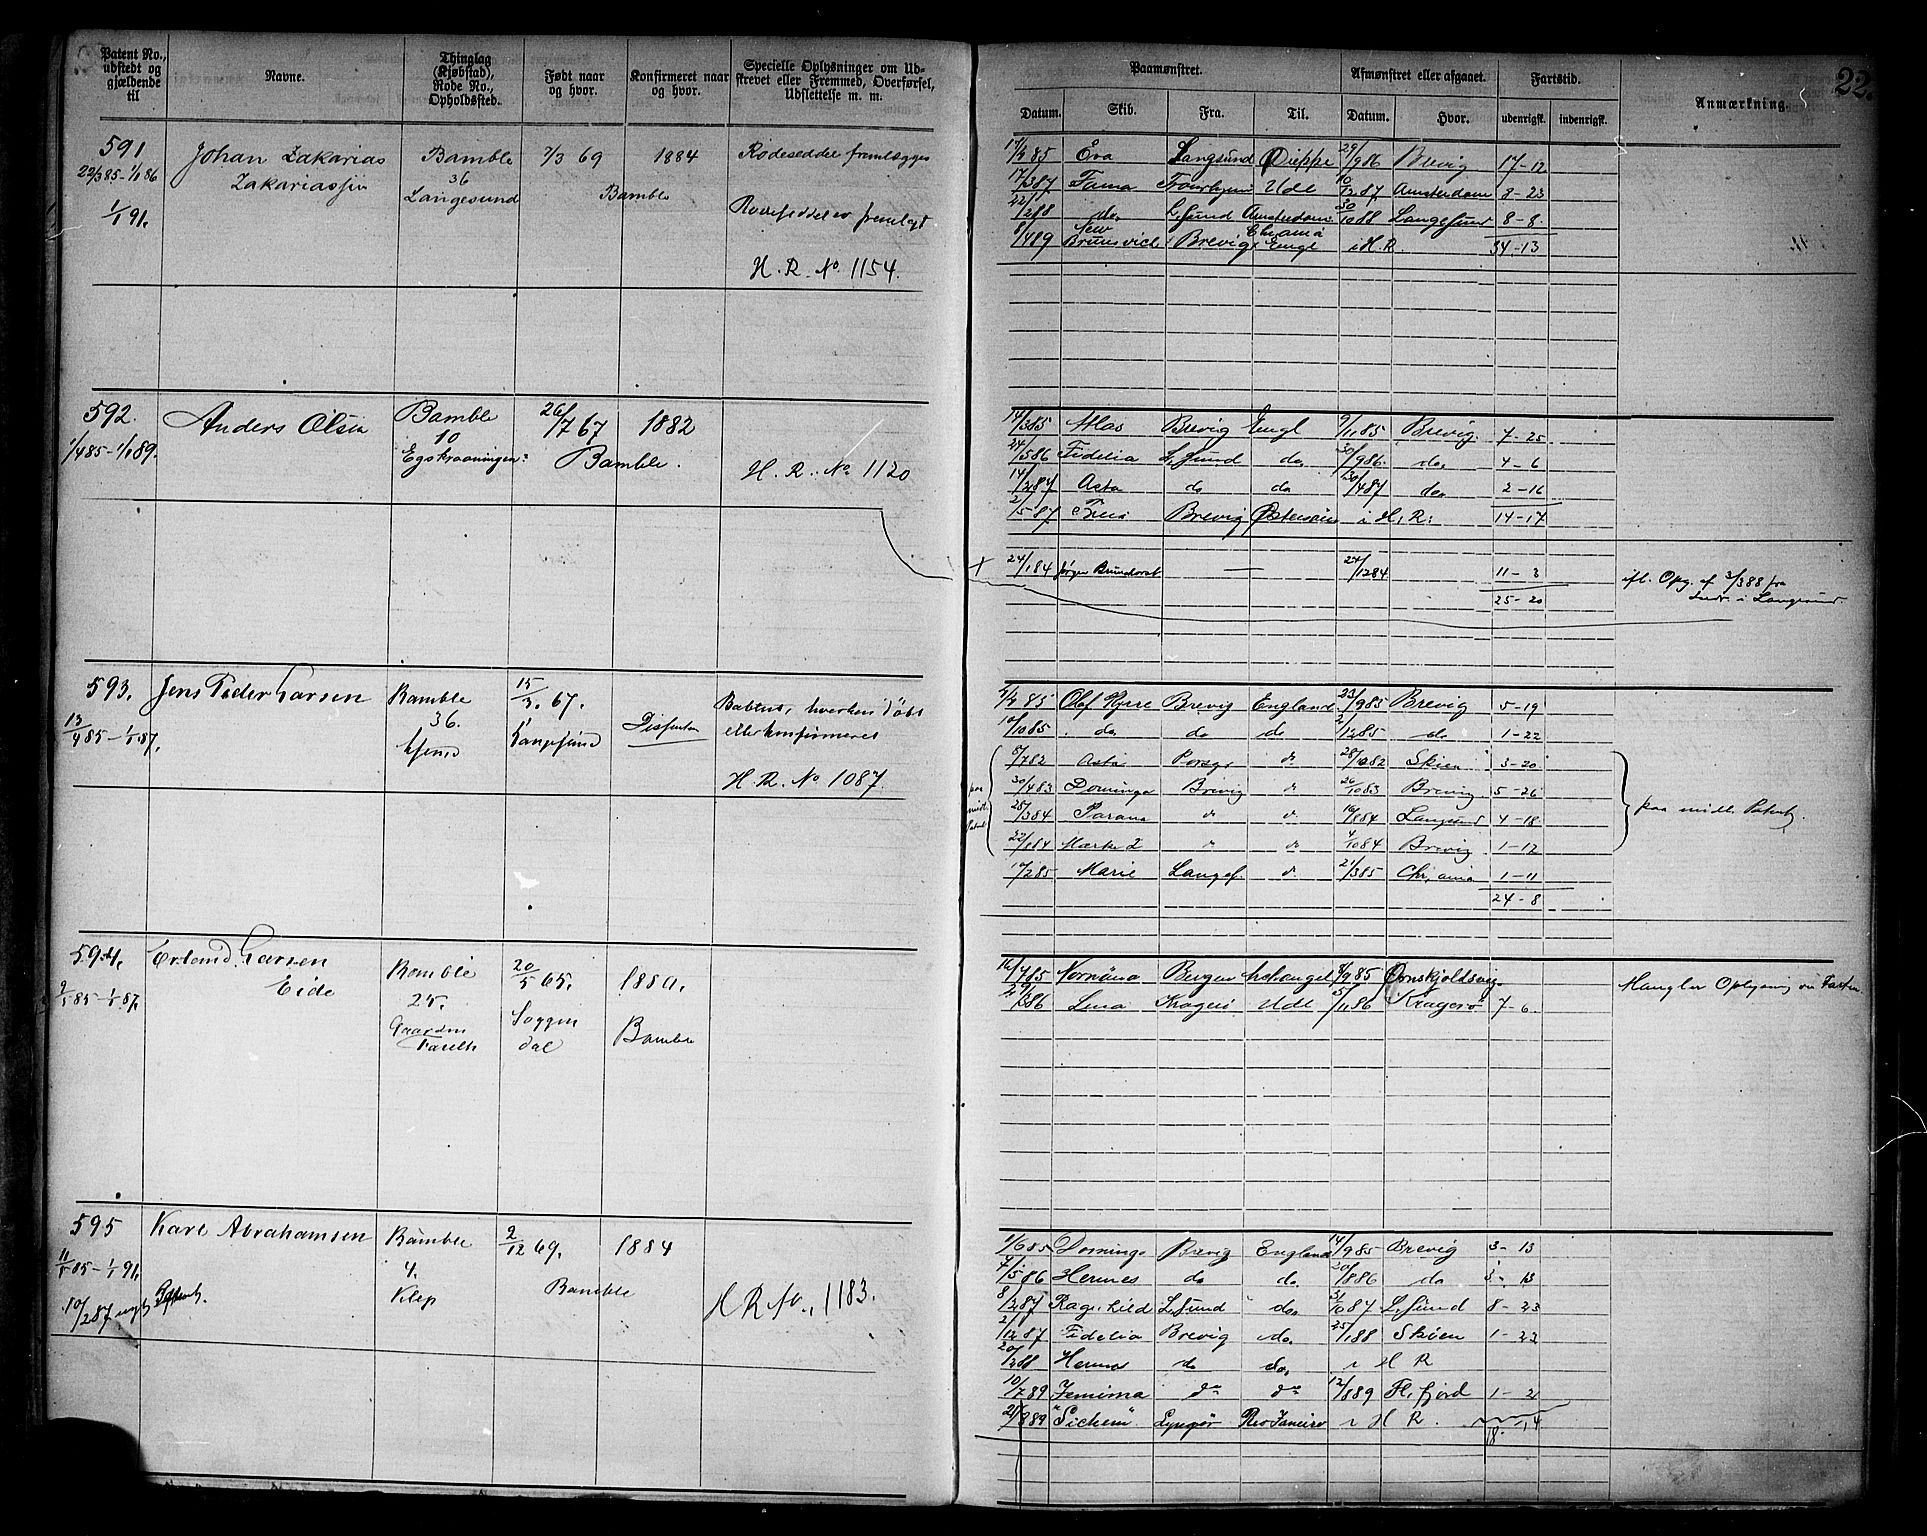 22.
Patent No., udstedt og gjældende til
Navne.
Thinglag (Kjøbstad), Rode No., Opholdssted.
Født naar og hvor.
Konfirmeret naar og hvor.
Specielle Oplysninger om Udskrevet eller Fremmed, Overførsel, Udslettelse m. m.
Paamønstret.
Afmønstret eller afgaaet.
Fartstid.
Anmærkning.
Datum. Skib. Fra. Til. Datum. Hvor. udenrigsk. indenrigsk.
591 Johan Zakarias Bamble 2/3 69 1884 Rodeseddel fremlægges
22/3 85 - 1/1 86 Zakariassen 36 Bamble
1/1 91. Langesund fremlagt
H. R. No 1154.
85 Eva Langsund Dieppe 29/9 86 Brevig 17-12
17/3 87 Fama Udl 10/12 87 Amsterdam 8-23
22/1 288 do L.sund Amsterdam 30/10 88 Langesund 8-8
8/4 89 New Brunsvich Brevig Engl i H. R. 34-13
592. Anders Olsen Bamble 26/7 67 1882
1/4 85 - 1/1 89. 10 Bamble.
Egskraaningen H. R. No 1120
14/3 85 Atlas Brevig Engl 9/1 85 Brevig. 7-25
24/5 86 Fidelia L.sund do 30/9 86. do. 4-6
14/2 87 Asta do do 30/4 87 do 2-16
2/5 87 Brevig Østersøen i H. R. 14-17
+ 24/1 84 Jørgen — 24/12 84 11-3 ifl. Opg. af 3/3 88 fra
25-20 i Langesund.
593. Jens Peder Larsen Bamble 15/3. 67. Dissenter
13/4 85 - 1/1 87. 36. Langesund eller konfirmeret
H. R. No 1087.
85 Olaf Kyrre Brevig England 23/9 85 Brevig 5-19
10/10 85 do. do do 2/12 85 do 1-22
8/7 82 Asta Porsgr d. 28/10 82 Skien 3-20
30/4 83 Domingo Brevig d. 26/10 83 Brevig 5-26
28/3 84 Parana d. d. 16/8 84 Langsund 4-18
22/1 84 d. 4/10 84 Brevig 1-12
10/2 85 Marie Langes. d. 21/3 85 Chr,ania 1-11
24-8
paa midl. Patent
paa midl. Patent.
594. Erland Larsen Bamble 20/5 65. 1880.
2/5 85 - 1/1 87. Eide 25. Soggendal Bamble
Gaarden
85 Bergen Archangel 8/9 85 Ørnskjoldsvig. Mangler Oplysning om Farten
86 Lena Kragerø Udl 5/11 86 Kragerø 7-6.
595 Karl Abrahamsen Bamble 2/12 69. 1884
11/5 85 - 1/1 91. 4. Bamble
10/2 87 Klep H R No. 1183.
1/6 85 Domingo Brevig England 14/9 85 Brevig 3-13
7/5 86 Hermes do do. 20/8 86 do 3-13
8/2 87 Ragnhild L.sund do. 31/10 87 L.sund 8-23
2/12 87 Fidelia Brevig do. 25/1 88 Skien 1-23
20/2 88 Hermes do do, i H R
10/7 89 Jemima do do 12/8 89 Fl.fjord 1-2
89 "Sichem" Lyngør Rio Janeiro i H R. 18. 14